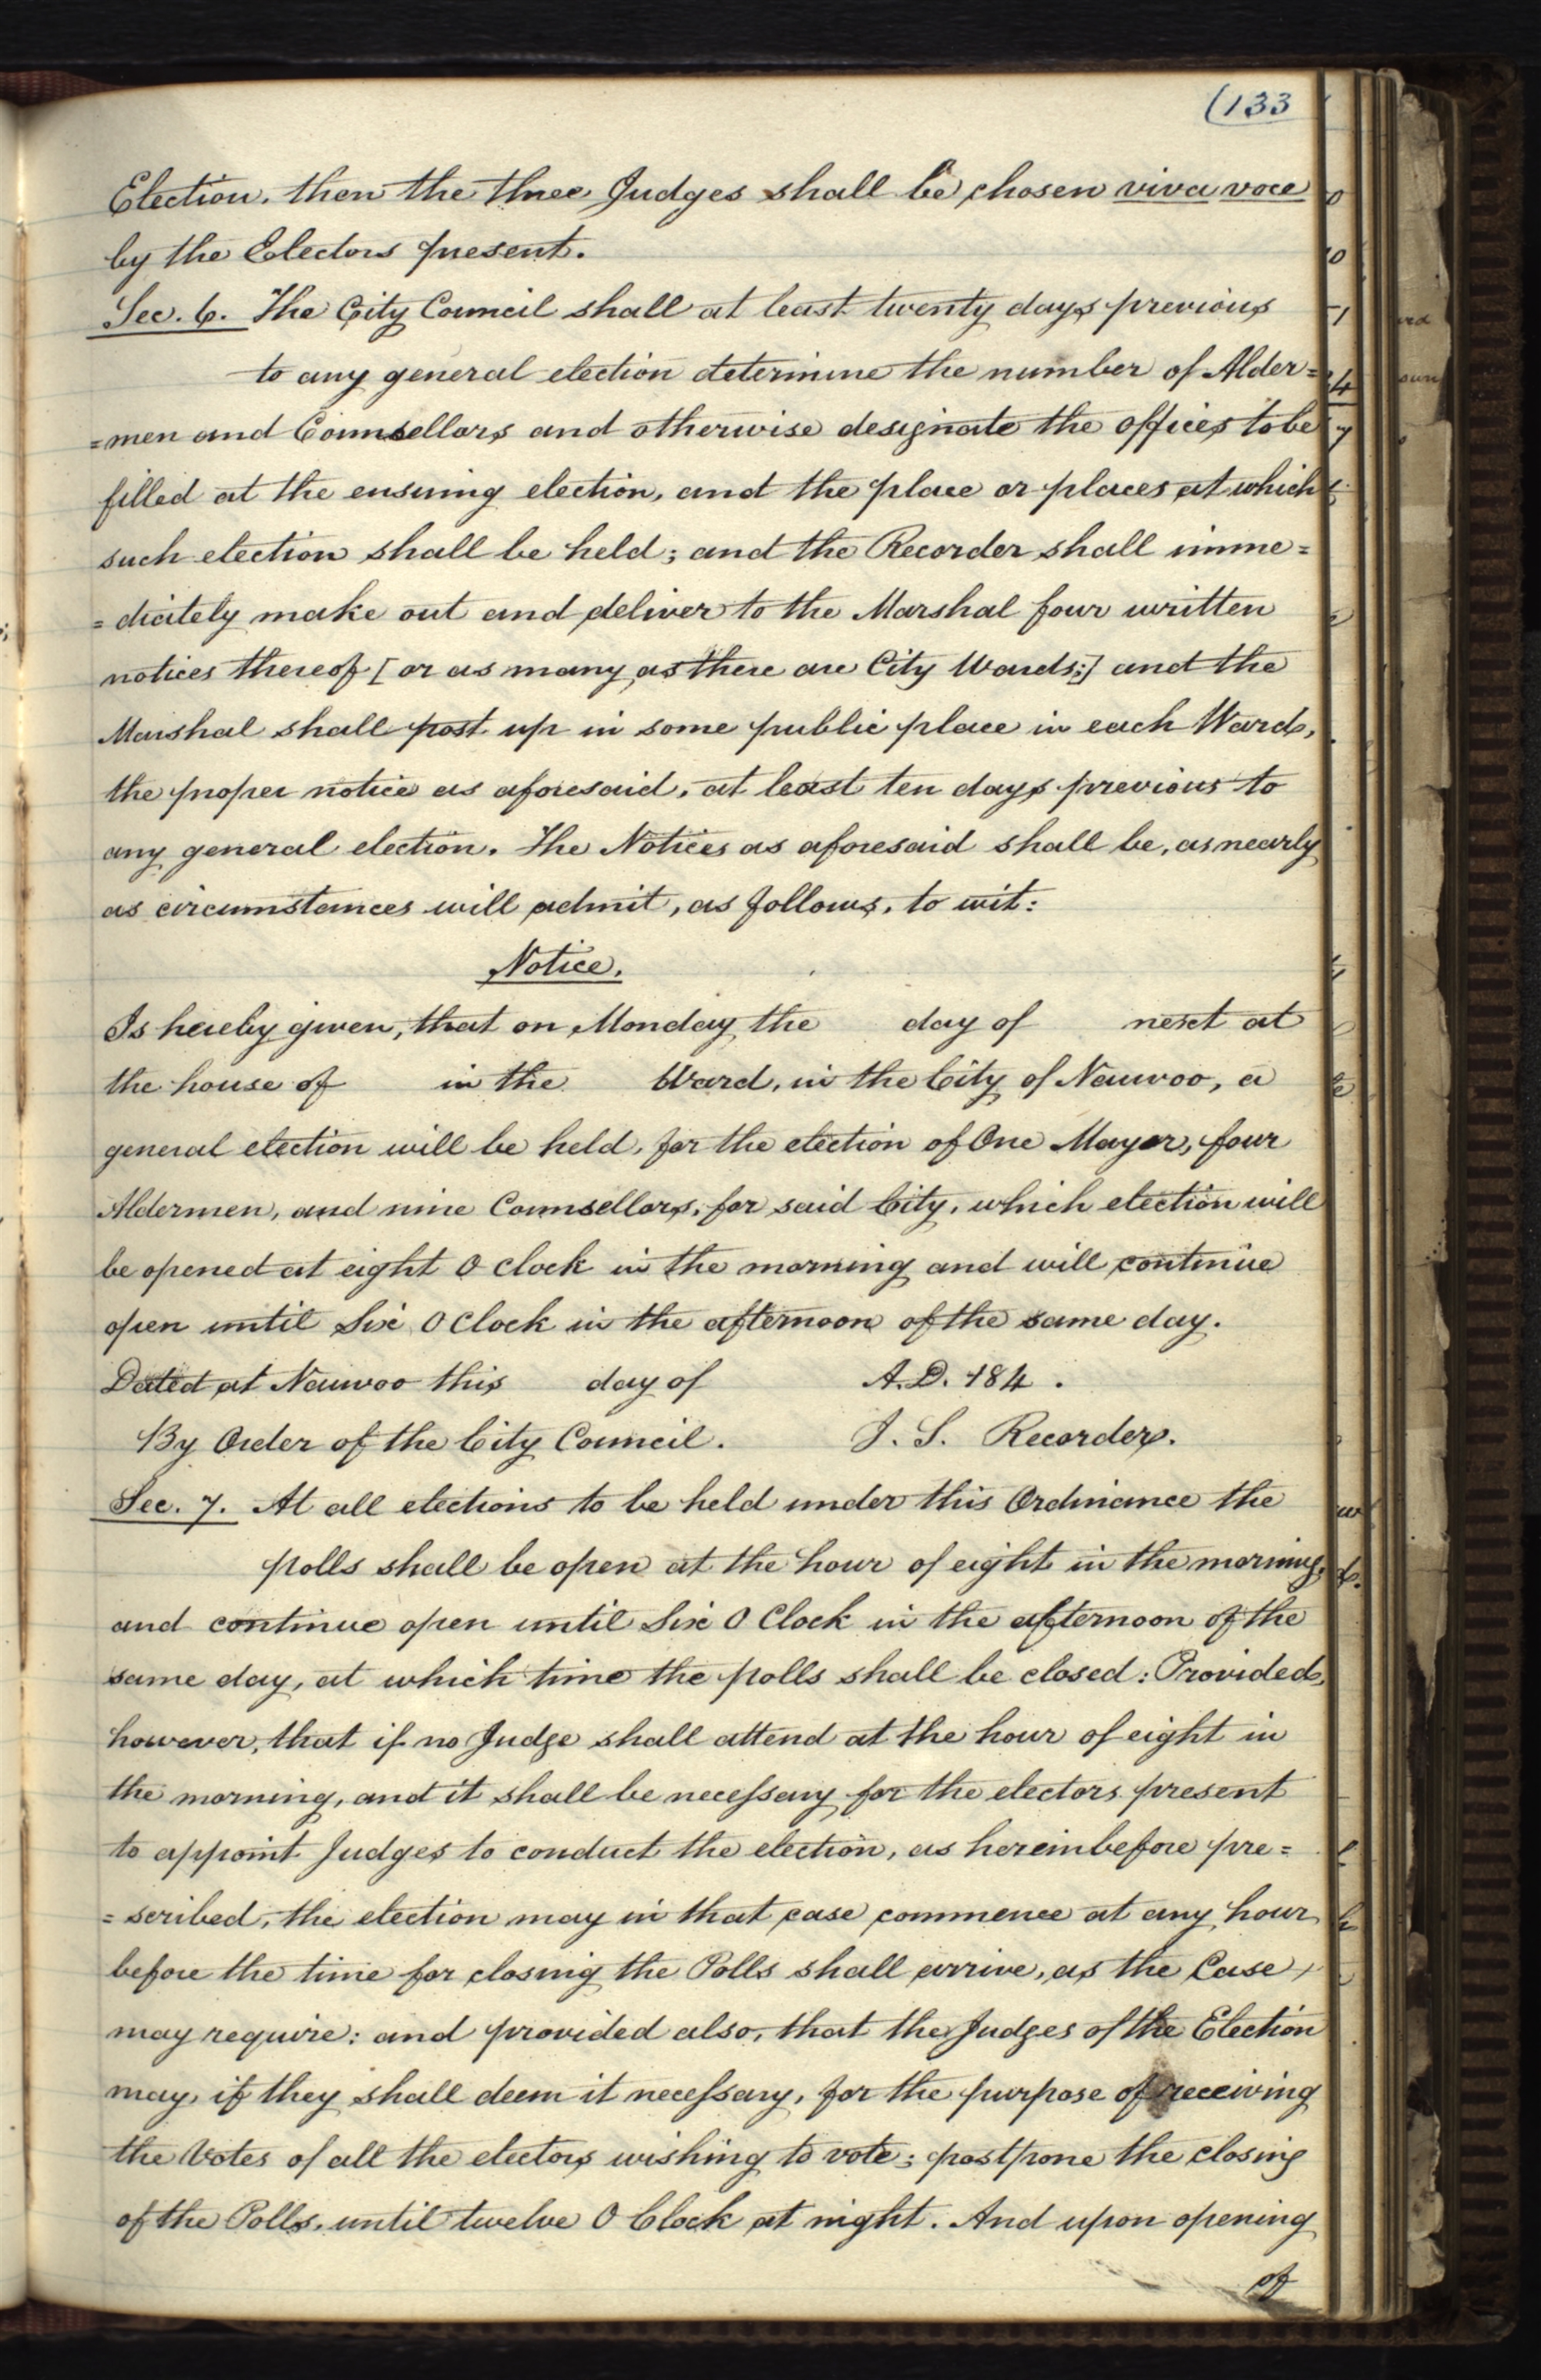 (133
Election, then the three Judges shall be chosen viva voce
by the Electors present.
Sec. 6. The City Council shall at least twenty days previous
to any general election determine the number of Alder=
=men and Counsellors and otherwise designate the offices to be
filled at the ensuing election, and the place or places at which
such election shall be held; and the Recorder shall imme=
=diately make out and deliver to the Marshal four written
notices thereof [or as many as there are City Wards;] and the
Marshal shall post up in some public place in each Ward,
the proper notice as aforesaid, at least ten days previous to
any general election. The Notices as aforesaid shall be, as nearly
as circumstances will admit, as follows, to wit:
Notice.
Is hereby given, that on Monday the day of next at
the house of in the Ward, in the City of Nauvoo, a
general election will be held, for the election of One Mayor, four
Aldermen, and nine Counsellors, for said City, which election will
be opened at eight O clock in the morning and will continue
open until Six O Clock in the afternoon of the same day.
Dated at Nauvoo this day of A.D. 184 .
By Order of the City Council. J. S. Recorder.
Sec. 7. At all elections to be held under this Ordinance the
polls shall be open at the hour of eight in the morning,
and continue open until Six O Clock in the afternoon of the
same day, at which time the polls shall be closed: Provided,
however, that if no Judge shall attend at the hour of eight in
the morning, and it shall be necessary for the electors present
to appoint Judges to conduct the election, as hereinbefore pre=
=scribed, the election may in that case commence at any hour
before the time for closing the Polls shall arrive, as the Case
may require: and provided also, that the Judges of the Election
may, if they shall deem it necessary, for the purpose of receiving
the Votes of all the electors wishing to vote; postpone the closing
of the Polls, until twelve O Clock at night. And upon opening
of